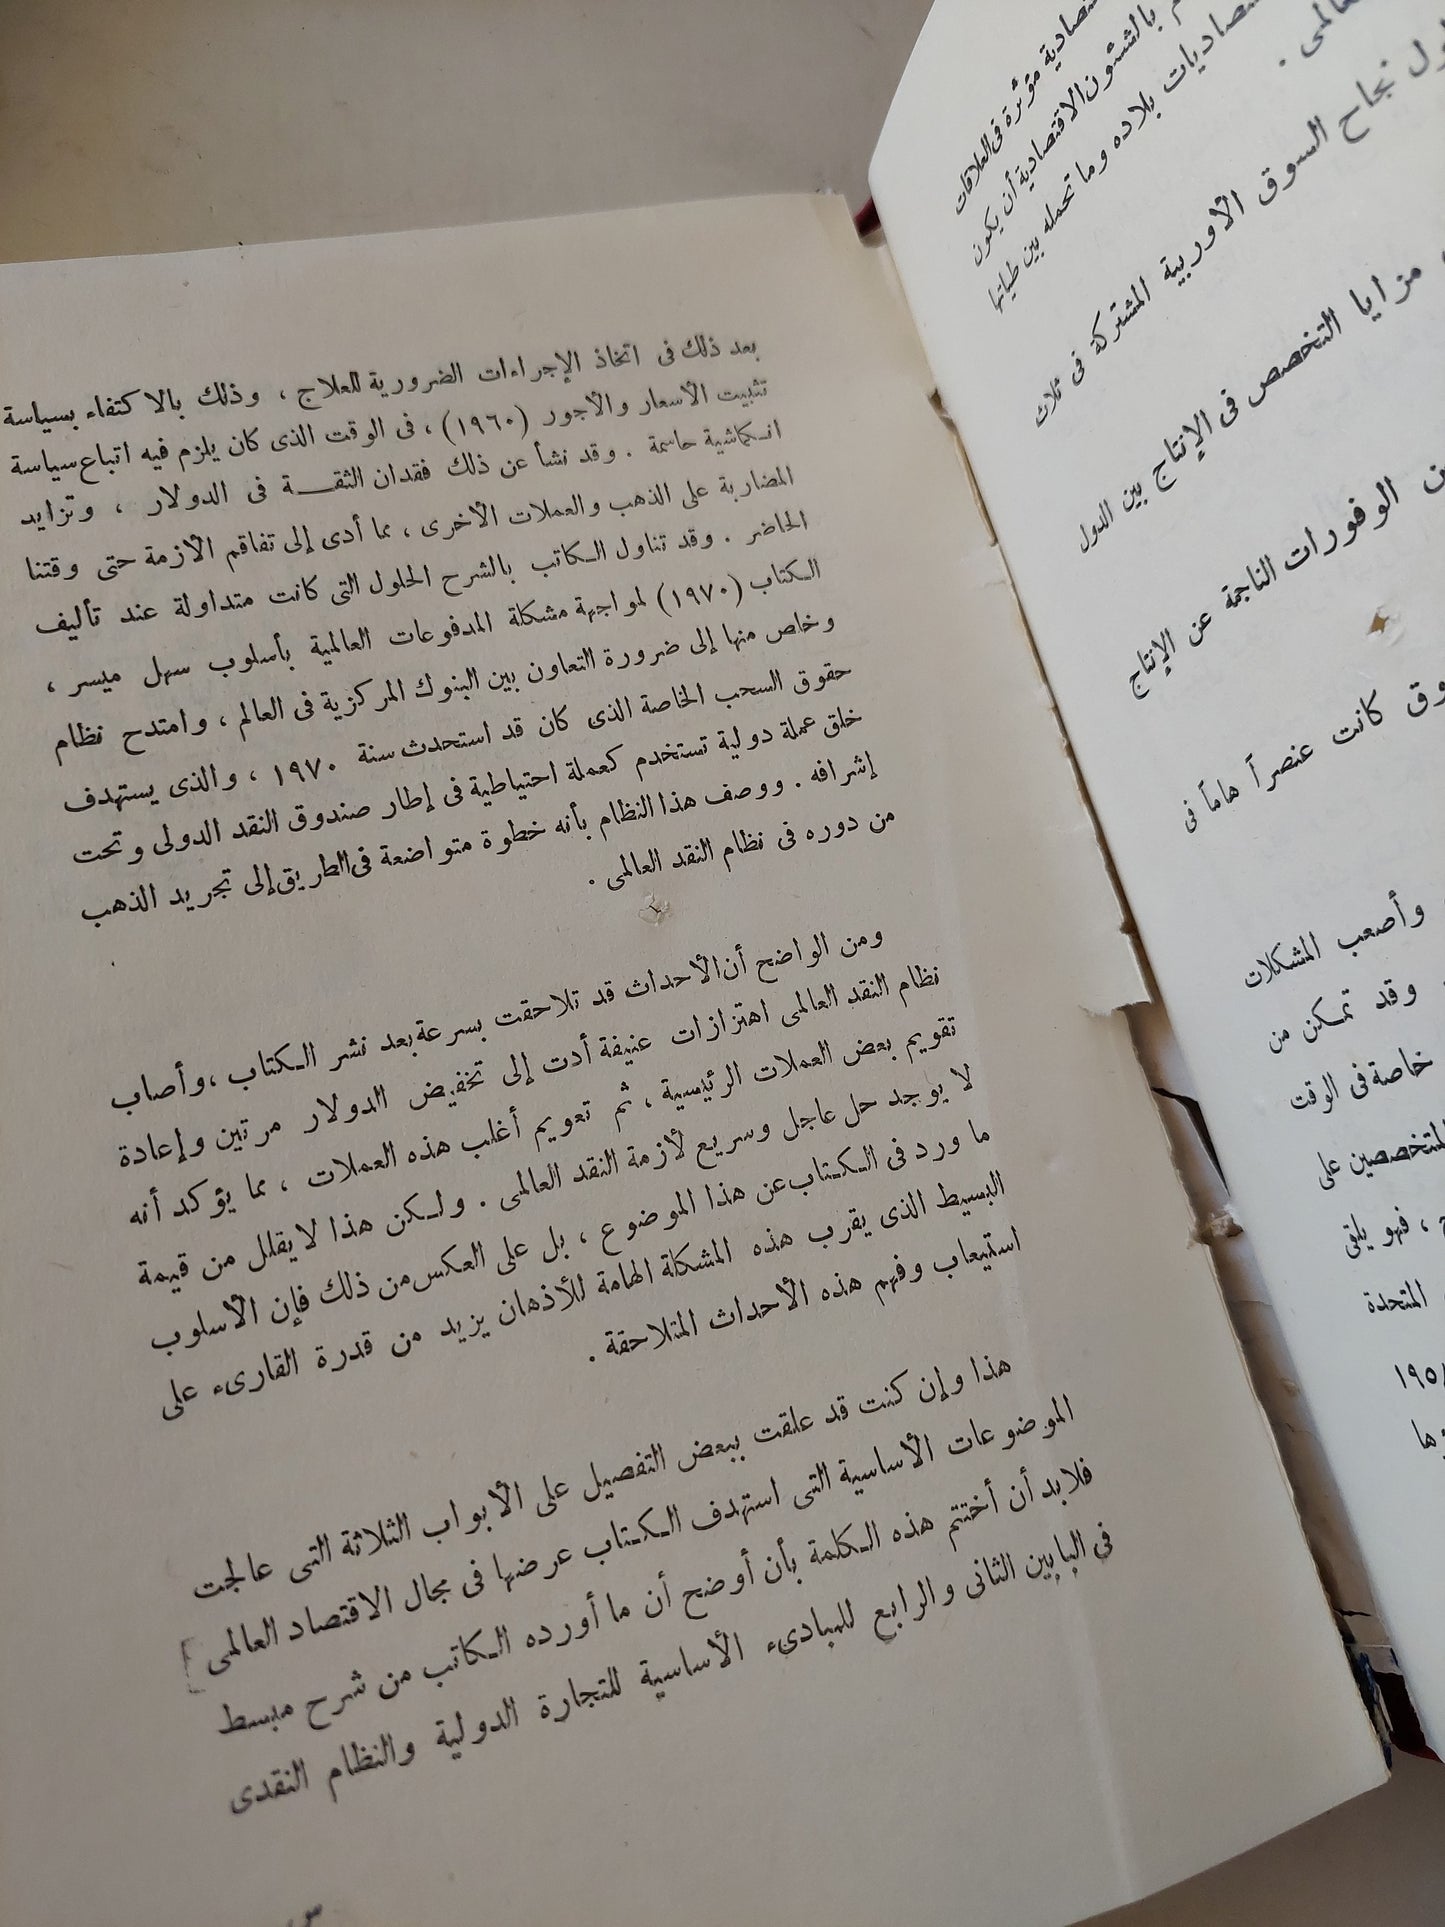 قتصادية مؤثرة فى العلاقات
م بالشئون الاقتصادية أن يكون
تصاديات بلاده وما تحمله بين طياتها
عالمى .
ول نجاح السوق الأوربية المشتركة فى ثلاث
مزايا التخصص فى الإنتاج بين الدول
الوفورات الناجمة عن الإنتاج
وق كانت عنصراً هاماً فى
وأصعب المشكلات
وقد تمكن من
خاصة فى الوقت
المتخصصين على
، فهو يلقى
المتحدة
بعد ذلك فى اتخاذ الإجراءات الضرورية للعلاج ، وذلك بالاكتفاء بسياسة
تثبيت الأسعار والأجور (١٩٦٠) ، فى الوقت الذى كان يلزم فيه اتباع سياسة
انكماشية حاسمة . وقد نشأ عن ذلك فقدان الثقة فى الدولار ، وتزايد
المضاربة على الذهب والعملات الأخرى ، مما أدى إلى تفاقم الأزمة حتى وقتنا
الحاضر . وقد تناول الكاتب بالشرح الحلول التى كانت متداولة عند تأليف
الكتاب (١٩٧٠) لمواجهة مشكلة المدفوعات العالمية بأسلوب سهل ميسر ،
وخاص منها إلى ضرورة التعاون بين البنوك المركزية فى العالم ، وامتدح نظام
حقوق السحب الخاصة الذى كان قد استحدث سنة ١٩٧٠ ، والذى يستهدف
خلق عملة دولية تستخدم كعملة احتياطية فى إطار صندوق النقد الدولى وتحت
إشرافه . ووصف هذا النظام بأنه خطوة متواضعة فى الطريق إلى تجريد الذهب
من دوره فى نظام النقد العالمى .
ومن الواضح أن الأحداث قد تلاحقت بسرعة بعد نشر الكتاب ، وأصاب
نظام النقد العالمى اهتزازات عنيفة أدت إلى تخفيض الدولار مرتين وإعادة
تقويم بعض العملات الرئيسية ، ثم تعويم أغلب هذه العملات ، مما يؤكد أنه
لا يوجد حل عاجل وسريع لأزمة النقد العالمى . ولكن هذا لا يقلل من قيمة
ما ورد فى الكتاب عن هذا الموضوع ، بل على العكس من ذلك فإن الأسلوب
البسيط الذى يقرب هذه المشكلة الهامة للأذهان يزيد من قدرة القارىء على
استيعاب وفهم هذه الأحداث المتلاحقة .
هذا وإن كنت قد علقت ببعض التفصيل على الأبواب الثلاثة التى عالجت
الموضوعات الأساسية التى استهدف الكتاب عرضها فى مجال الاقتصاد العالمى
فلابد أن أختتم هذه الكلمة بأن أوضح أن ما أورده الكاتب من شرح مبسط
فى البابين الثانى والرابع للمبادىء الأساسية للتجارة الدولية والنظام النقدى
س